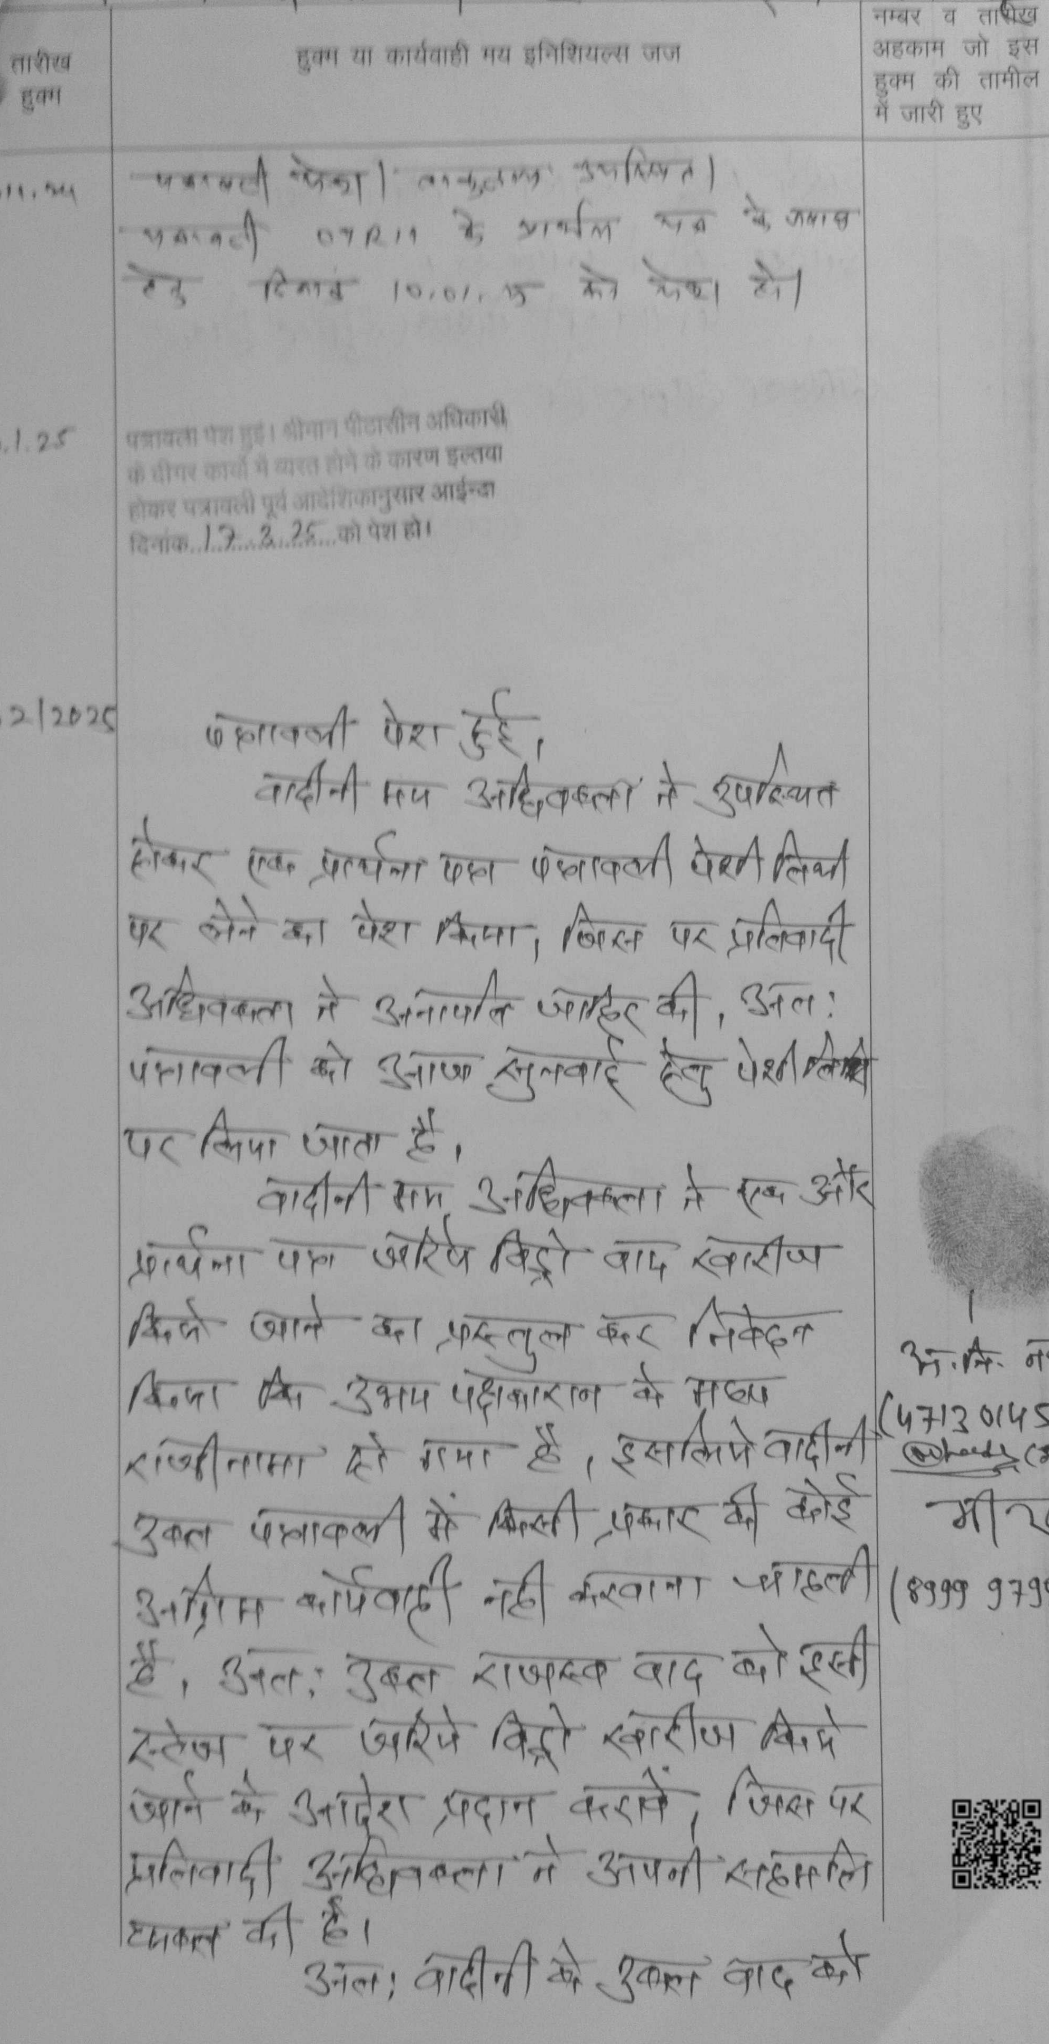 तारीख
हुक्म
हुक्म या कार्यवाही मय इनिशियल्स जज
नम्बर व तारीख
अहकाम जो इस
हुक्म की तामील
में जारी हुए
पत्रावली पेश। वकुलाय उपस्थित।
पत्रावली 07R11 के प्रार्थना पत्र के जवाब
हेतु दिनांक 10.01.25 को पेश हो।
.1.25
पत्रावली पेश हुई। श्रीमान पीठासीन अधिकारी
के दीगर कार्यो में व्यस्त होने के कारण इल्तवा
होकर पत्रावली पूर्व आदेशिकानुसार आईन्दा
दिनांक..17.3.25...को पेश हो।
2/2025
पत्रावली पेश हुई,
वादीनी मय अधिवक्ता ने उपस्थित
होकर एक प्रार्थना पत्र पत्रावली पेशी तिथी
पर लेने का पेश किया, जिस पर प्रतिवादी
अधिवक्ता ने अनापति जाहिर की, अत:
पत्रावली को आज सुनवाई हेतु पेशी तिथी
पर लिया जाता है,
वादीनी मय अधिवक्ता ने एक और
प्रार्थना पत्र जरिये विड्रो वाद खारीज
किये जाने का प्रस्तुत कर निवेदन
किया कि उभय पक्षकारान के मध्य
राजीनामा हो गया है, इसलिये वादीनी
उक्त पत्रावली में किसी प्रकार की कोई
अग्रिम कार्यवाही नही करवाना चाहती
है, अत: उक्त राजस्व वाद को इसी
स्टेज पर जरिये विड्रो खारीज किये
जाने के आदेश प्रदान करावें, जिस पर
प्रतिवादी अधिवक्ता ने अपनी सहमति
व्यक्त की है।
अत: वादीनी के उक्त वाद को
अ.नि.
(4713 0145
मी
(8999 979